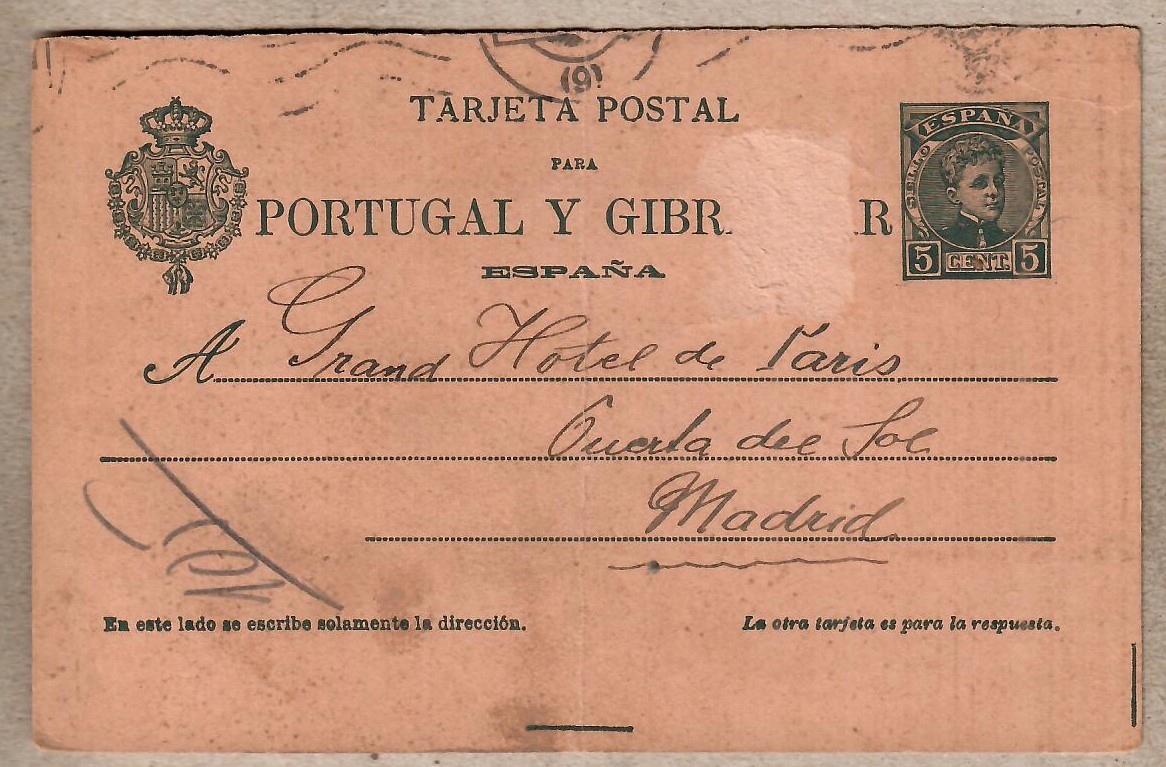 (9)
TARJETA POSTAL
PARA
PORTUGAL Y GIBR AR
ESPAÑA
ESPAÑA
SELLO POSTAL
5 CENT. 5
A Grand Hotel de Paris
Puerta del Sol
Madrid
En este lado se escribe solamente la dirección.
La otra tarjeta es para la respuesta.